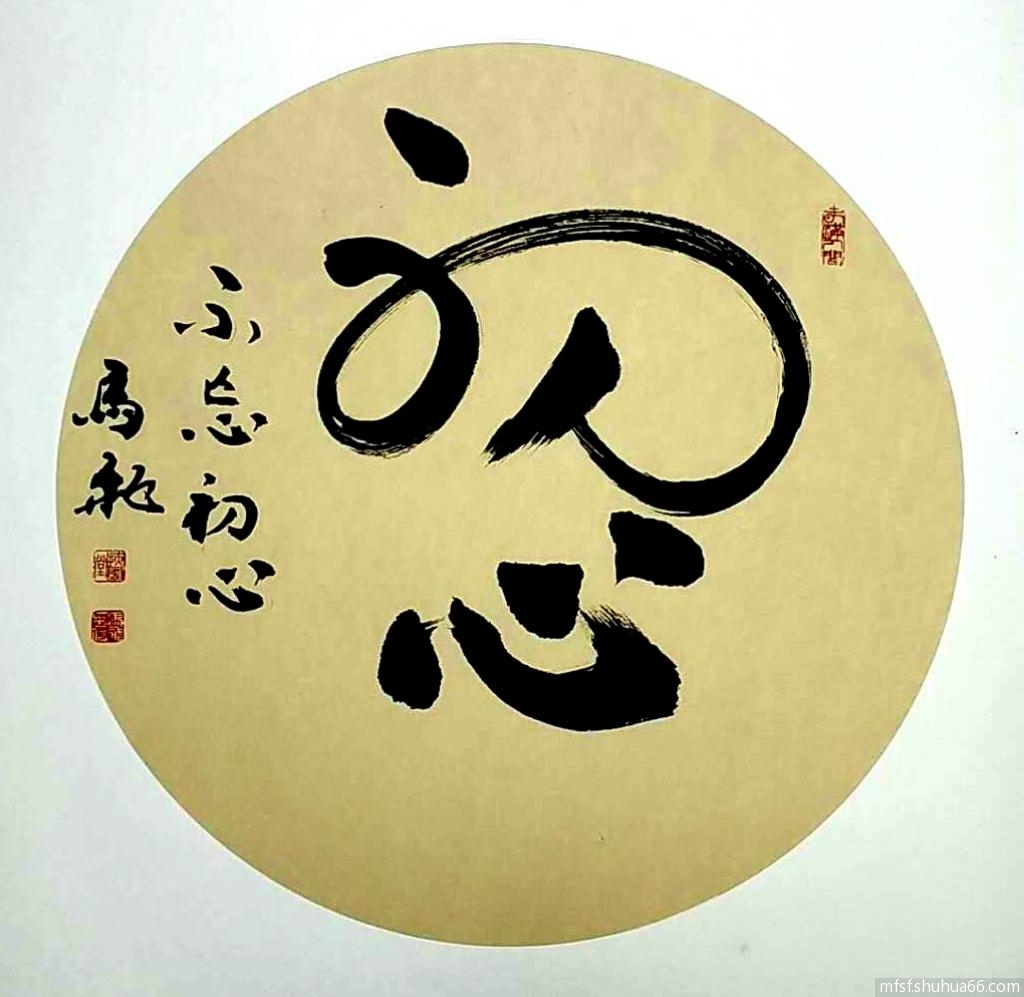 初心
不忘初心
馬
mfsf.shuhua66.com